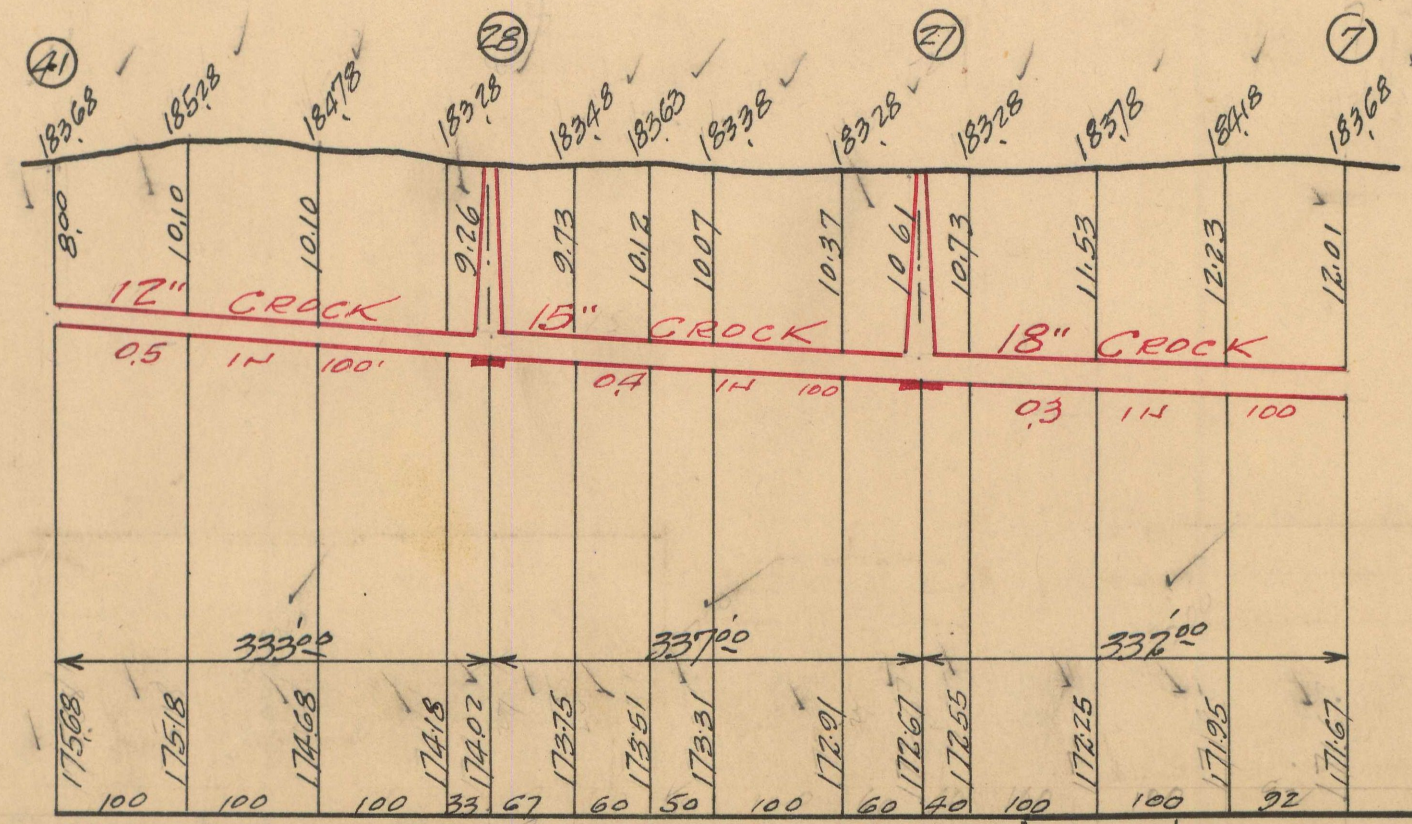 41 28 27 7
183.68 185.28 184.78 183.28 183.48 183.63 183.38 183.28 183.28 183.78 184.18 183.68
8.00 10.10 10.10 9.26 9.73 10.12 10.07 10.37 10.61 10.73 11.53 12.23 12.01
12" CROCK 15" CROCK 18" CROCK
0.5 IN 100' 0.4 IN 100 0.3 IN 100
333.00' 337.00' 332.00'
175.68 175.18 174.68 174.18 174.02 173.75 173.51 173.31 172.91 172.67 172.55 172.25 171.95 171.67
100 100 100 33 67 60 50 100 60 40 100 100 92